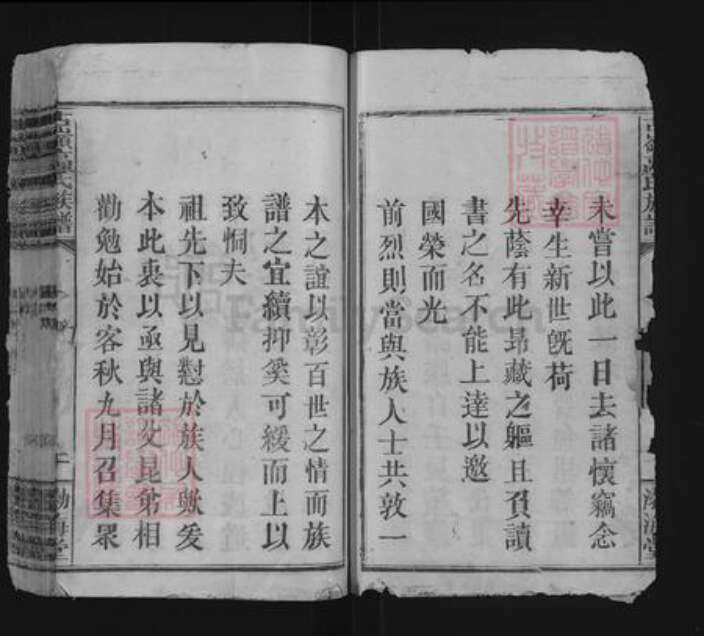 未嘗以此一日去諸懷竊念
幸生新世既荷
先蔭有此昻藏之軀且負讀
書之名不能上達以邀
國榮而光
前烈則當與族人士共敦一
本之誼以彰百世之情而族
譜之宜續抑奚可緩而上以
致恫夫
祖先下以見懟於族人歟爰
本此衷以亟與諸父昆弟相
勸勉始於客秋九月召集眾
氏族譜
渤海堂
FamilySearch